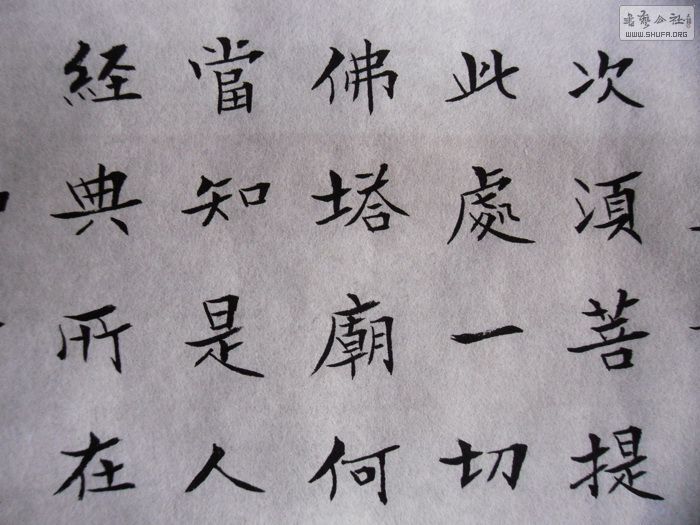 次須菩提
此處一切
佛塔廟何
當知是人
経典所在
書藝公社
WWW.SHUFA.ORG